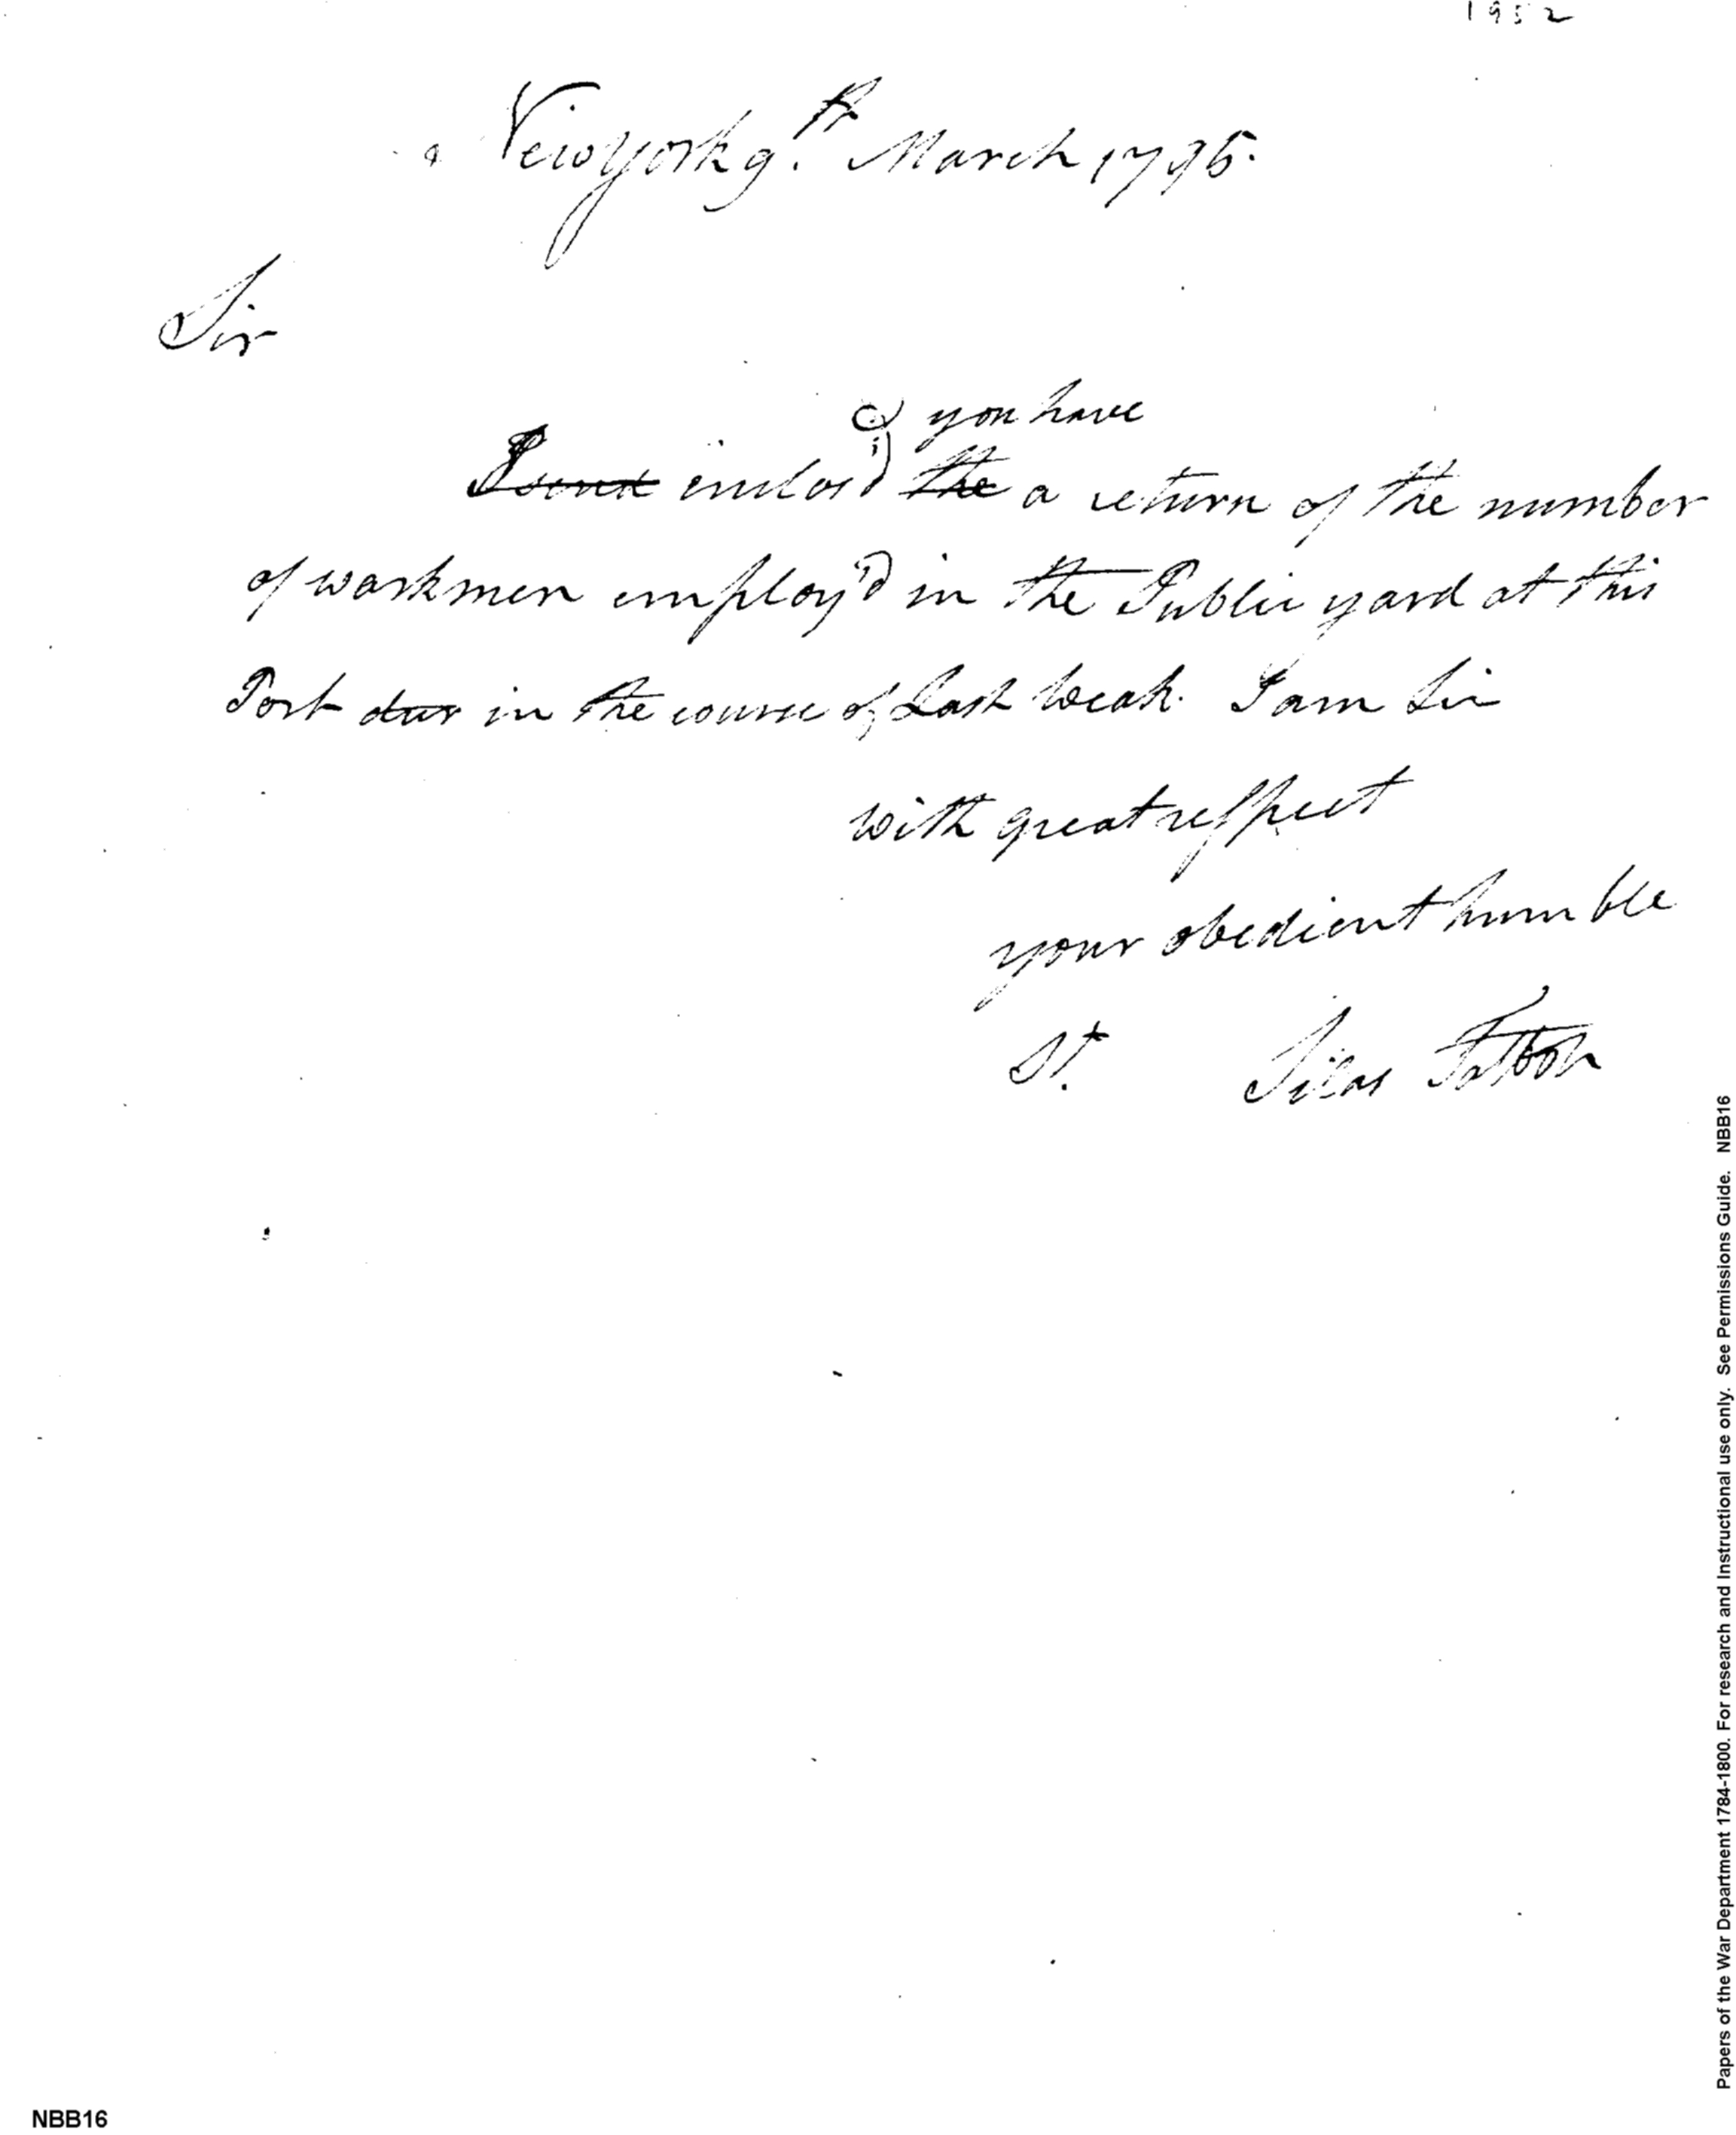 1952
New york 9.th March 1795.
Sir
you have
I send inclos'd the a return of the number
of workmen employ'd in the Public yard at this
Port dur in the course of Last weak. I am Sir
with great respect
your obedient humble
St. Silas Talbot
NBB16
Papers of the War Department 1784-1800. For research and Instructional use only. See Permissions Guide. NBB16